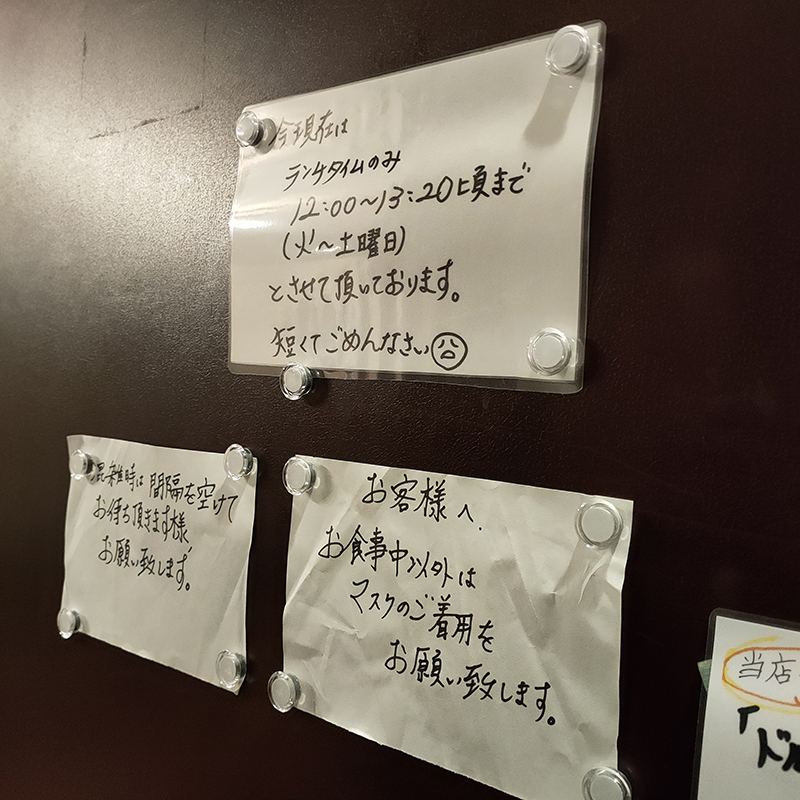 今現在は
ランチタイムのみ
12:00～13:20頃まで
(火～土曜日)
とさせて頂いております。
短くてごめんなさい
混雑時は間隔を空けて
お待ち頂きます様
お願い致します。
お客様へ
お食事中以外は
マスクのご着用を
お願い致します。
当店
「ドル